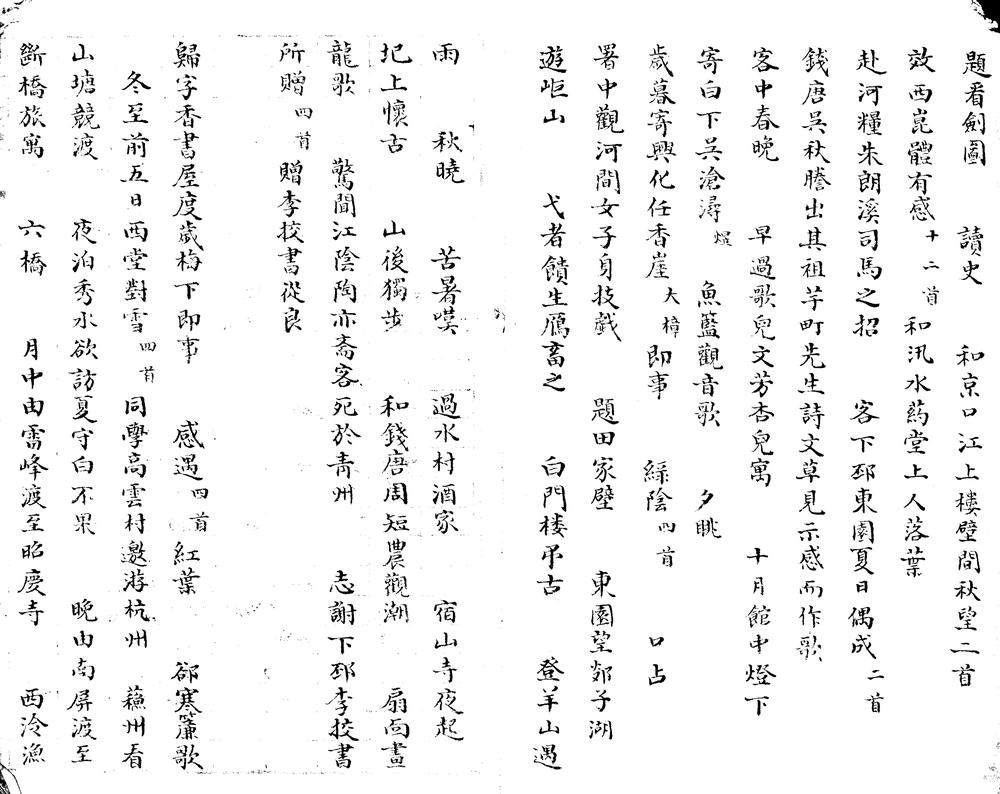 題看劍圖　讀史　和京口江上樓壁間秋望二首
效西崑體有感十二首　和汛水葯堂上人落葉
赴河糧朱朗溪司馬之招　客下邳東園夏日偶成二首
錢唐吳秋謄出其祖芋町先生詩文草見示感而作歌
客中春晚　早過歌兒文芳杏兒寓　十月館中燈下
寄白下吳滄潯煋　魚籃觀音歌　夕眺
歲暮寄興化任香崖大椿即事　綠陰四首　口占
署中觀河間女子身技戲　題田家壁　東園望郯子湖
遊岠山　弋者饋生鴈畜之　白門樓弔古　登羊山遇
雨　秋曉　苦暑嘆　過水村酒家　宿山寺夜起
圯上懷古　山後獨步　和錢唐周短農觀潮　扇面畫
龍歌　驚聞江陰陶亦斋客死於青州　志謝下邳李挍書
所贈四首　贈李挍書從良
歸字香書屋度歲梅下即事　感遇四首　紅葉　郤寒簾歌
冬至前五日西堂對雪四首　同學高雲村邀游杭州　蘓州看
山塘競渡　夜泊秀水欲訪夏守白不果　晚由南屏渡至
斷橋旅寓　六橋　月中由雷峰渡至昭慶寺　西泠漁